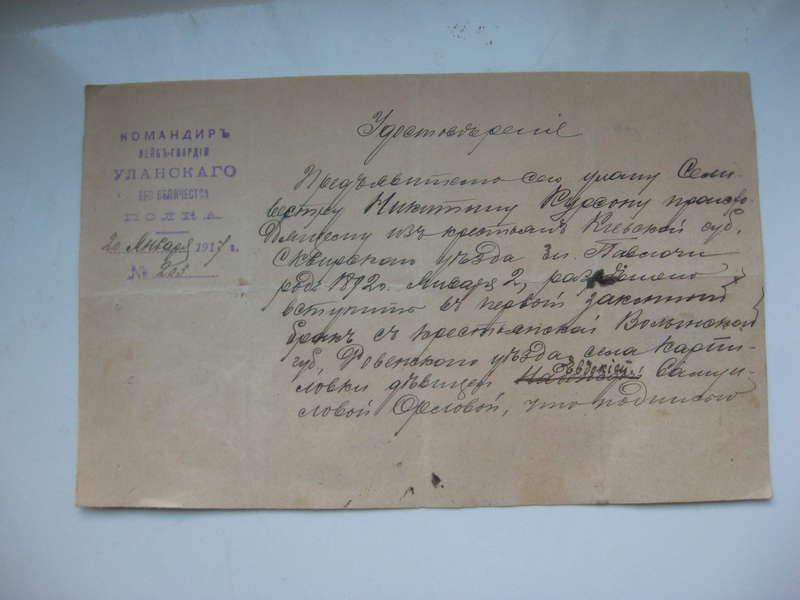 КОМАНДИРЪ
ЛЕЙБЪ-ГВАРДІИ
УЛАНСКАГО
ЕГО ВЕЛИЧЕСТВА
ПОЛКА
20 Января 1917 г.
№ 203
Удостовѣреніе
Предъявителю сего улану Сели-
вестру Никитину Курсону происхо-
дящему изъ крестьянъ Кіевской губ.
Сквирскаго уѣзда м. Паволочи
род. 1892 г. Января 2, разрѣшено
вступить въ первый законный
бракъ съ крестьянской Волынской
губ. Ровенского уѣзда села Карпи-
ловки дѣвицей Самуи-
ловой Орловой, что подписью